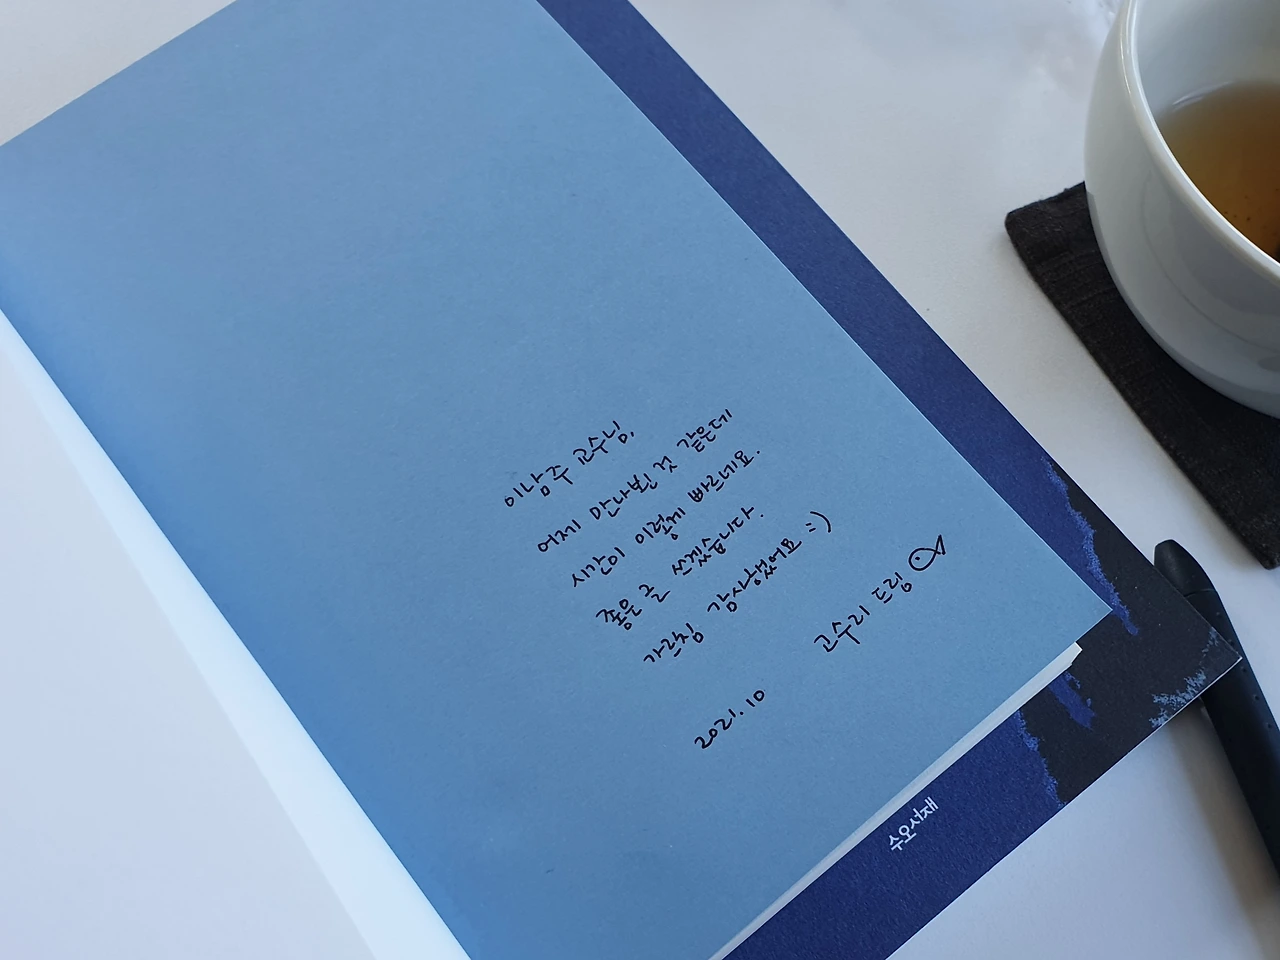 이남주 교수님,
어제 만나뵌 것 같은데
시간이 이렇게 빠르네요.
좋은 글 쓰겠습니다.
가르침 감사했어요 :)
고수리 드림
2021.10
수오서재